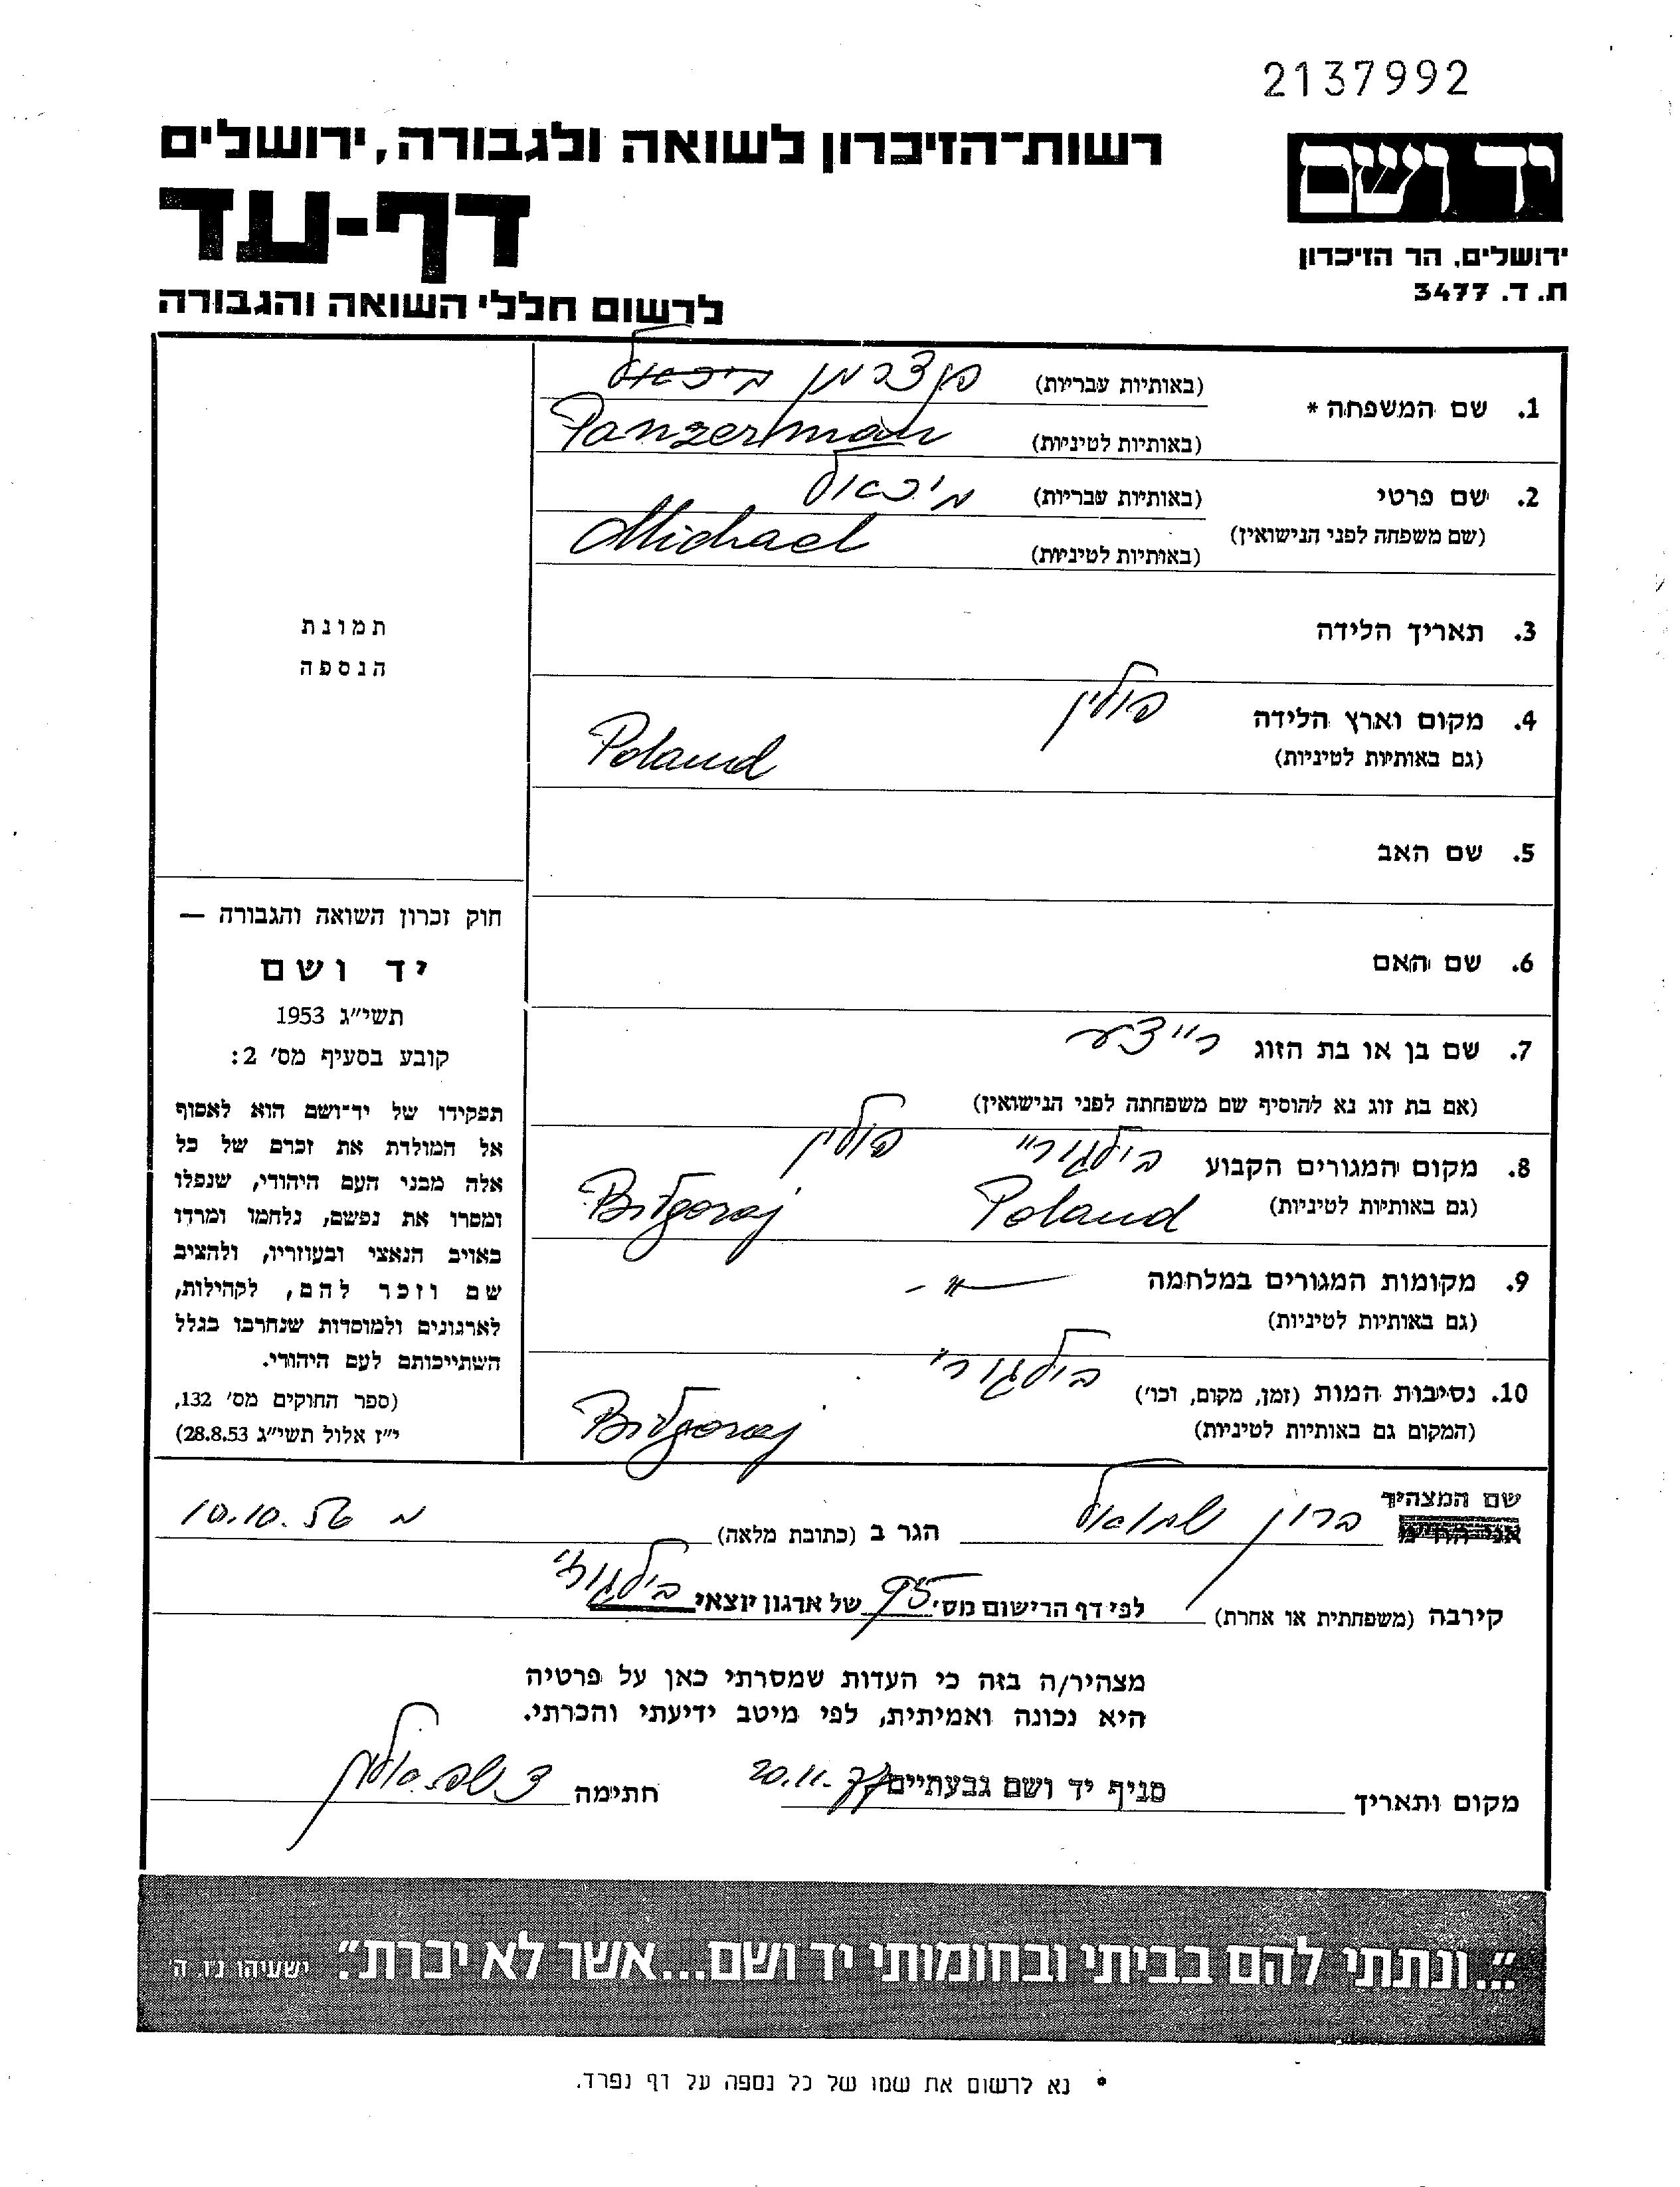 2137992
יד ושם
ירושלים, הר הזיכרון
ת. ד. 3477
רשות־הזיכרון לשואה ולגבורה, ירושלים
דף-עד
לרשום חללי השואה והגבורה
1. שם המשפחה * (באותיות עבריות) פנצרמן מיכאל
(באותיות לטיניות) Panzerman
2. שם פרטי (באותיות עבריות) מיכאל
(שם משפחה לפני הנישואין) (באותיות לטיניות) Michael
3. תאריך הלידה
4. מקום וארץ הלידה פולין
(גם באותיות לטיניות) Poland
5. שם האב
6. שם האם
7. שם בן או בת הזוג רייצע
(אם בת זוג נא להוסיף שם משפחתה לפני הנישואין)
8. מקום המגורים הקבוע בילגוריי פולין
(גם באותיות לטיניות) Poland Biłgoraj
9. מקומות המגורים במלחמה -"-
(גם באותיות לטיניות)
10. נסיבות המות (זמן, מקום, וכו') בילגוריי
(המקום גם באותיות לטיניות) Biłgoraj
תמונת
הנספה
חוק זכרון השואה והגבורה —
יד ושם
תשי"ג 1953
קובע בסעיף מס' 2:
תפקידו של יד־ושם הוא לאסוף
אל המולדת את זכרם של כל
אלה מבני העם היהודי, שנפלו
ומסרו את נפשם, נלחמו ומרדו
באויב הנאצי ובעוזריו, ולהציב
שם וזכר להם, לקהילות,
לארגונים ולמוסדות שנחרבו בגלל
השתייכותם לעם היהודי.
(ספר החוקים מס' 132,
י"ז אלול תשי"ג 28.8.53)
שם המצהיר
אני הח"מ ברון שמואל הגר ב (כתובת מלאה) מ 10.10.56
קירבה (משפחתית או אחרת) לפי דף הרישום מס' 95 של ארגון יוצאי בילגוריי
מצהיר/ה בזה כי העדות שמסרתי כאן על פרטיה
היא נכונה ואמיתית, לפי מיטב ידיעתי והכרתי.
מקום ותאריך סניף יד ושם גבעתיים 20.11.77 חתימה
"...ונתתי להם בביתי ובחומותי יד ושם...אשר לא יכרת". ישעיהו נ"ו, ה'
* נא לרשום את שמו של כל נספה על דף נפרד.